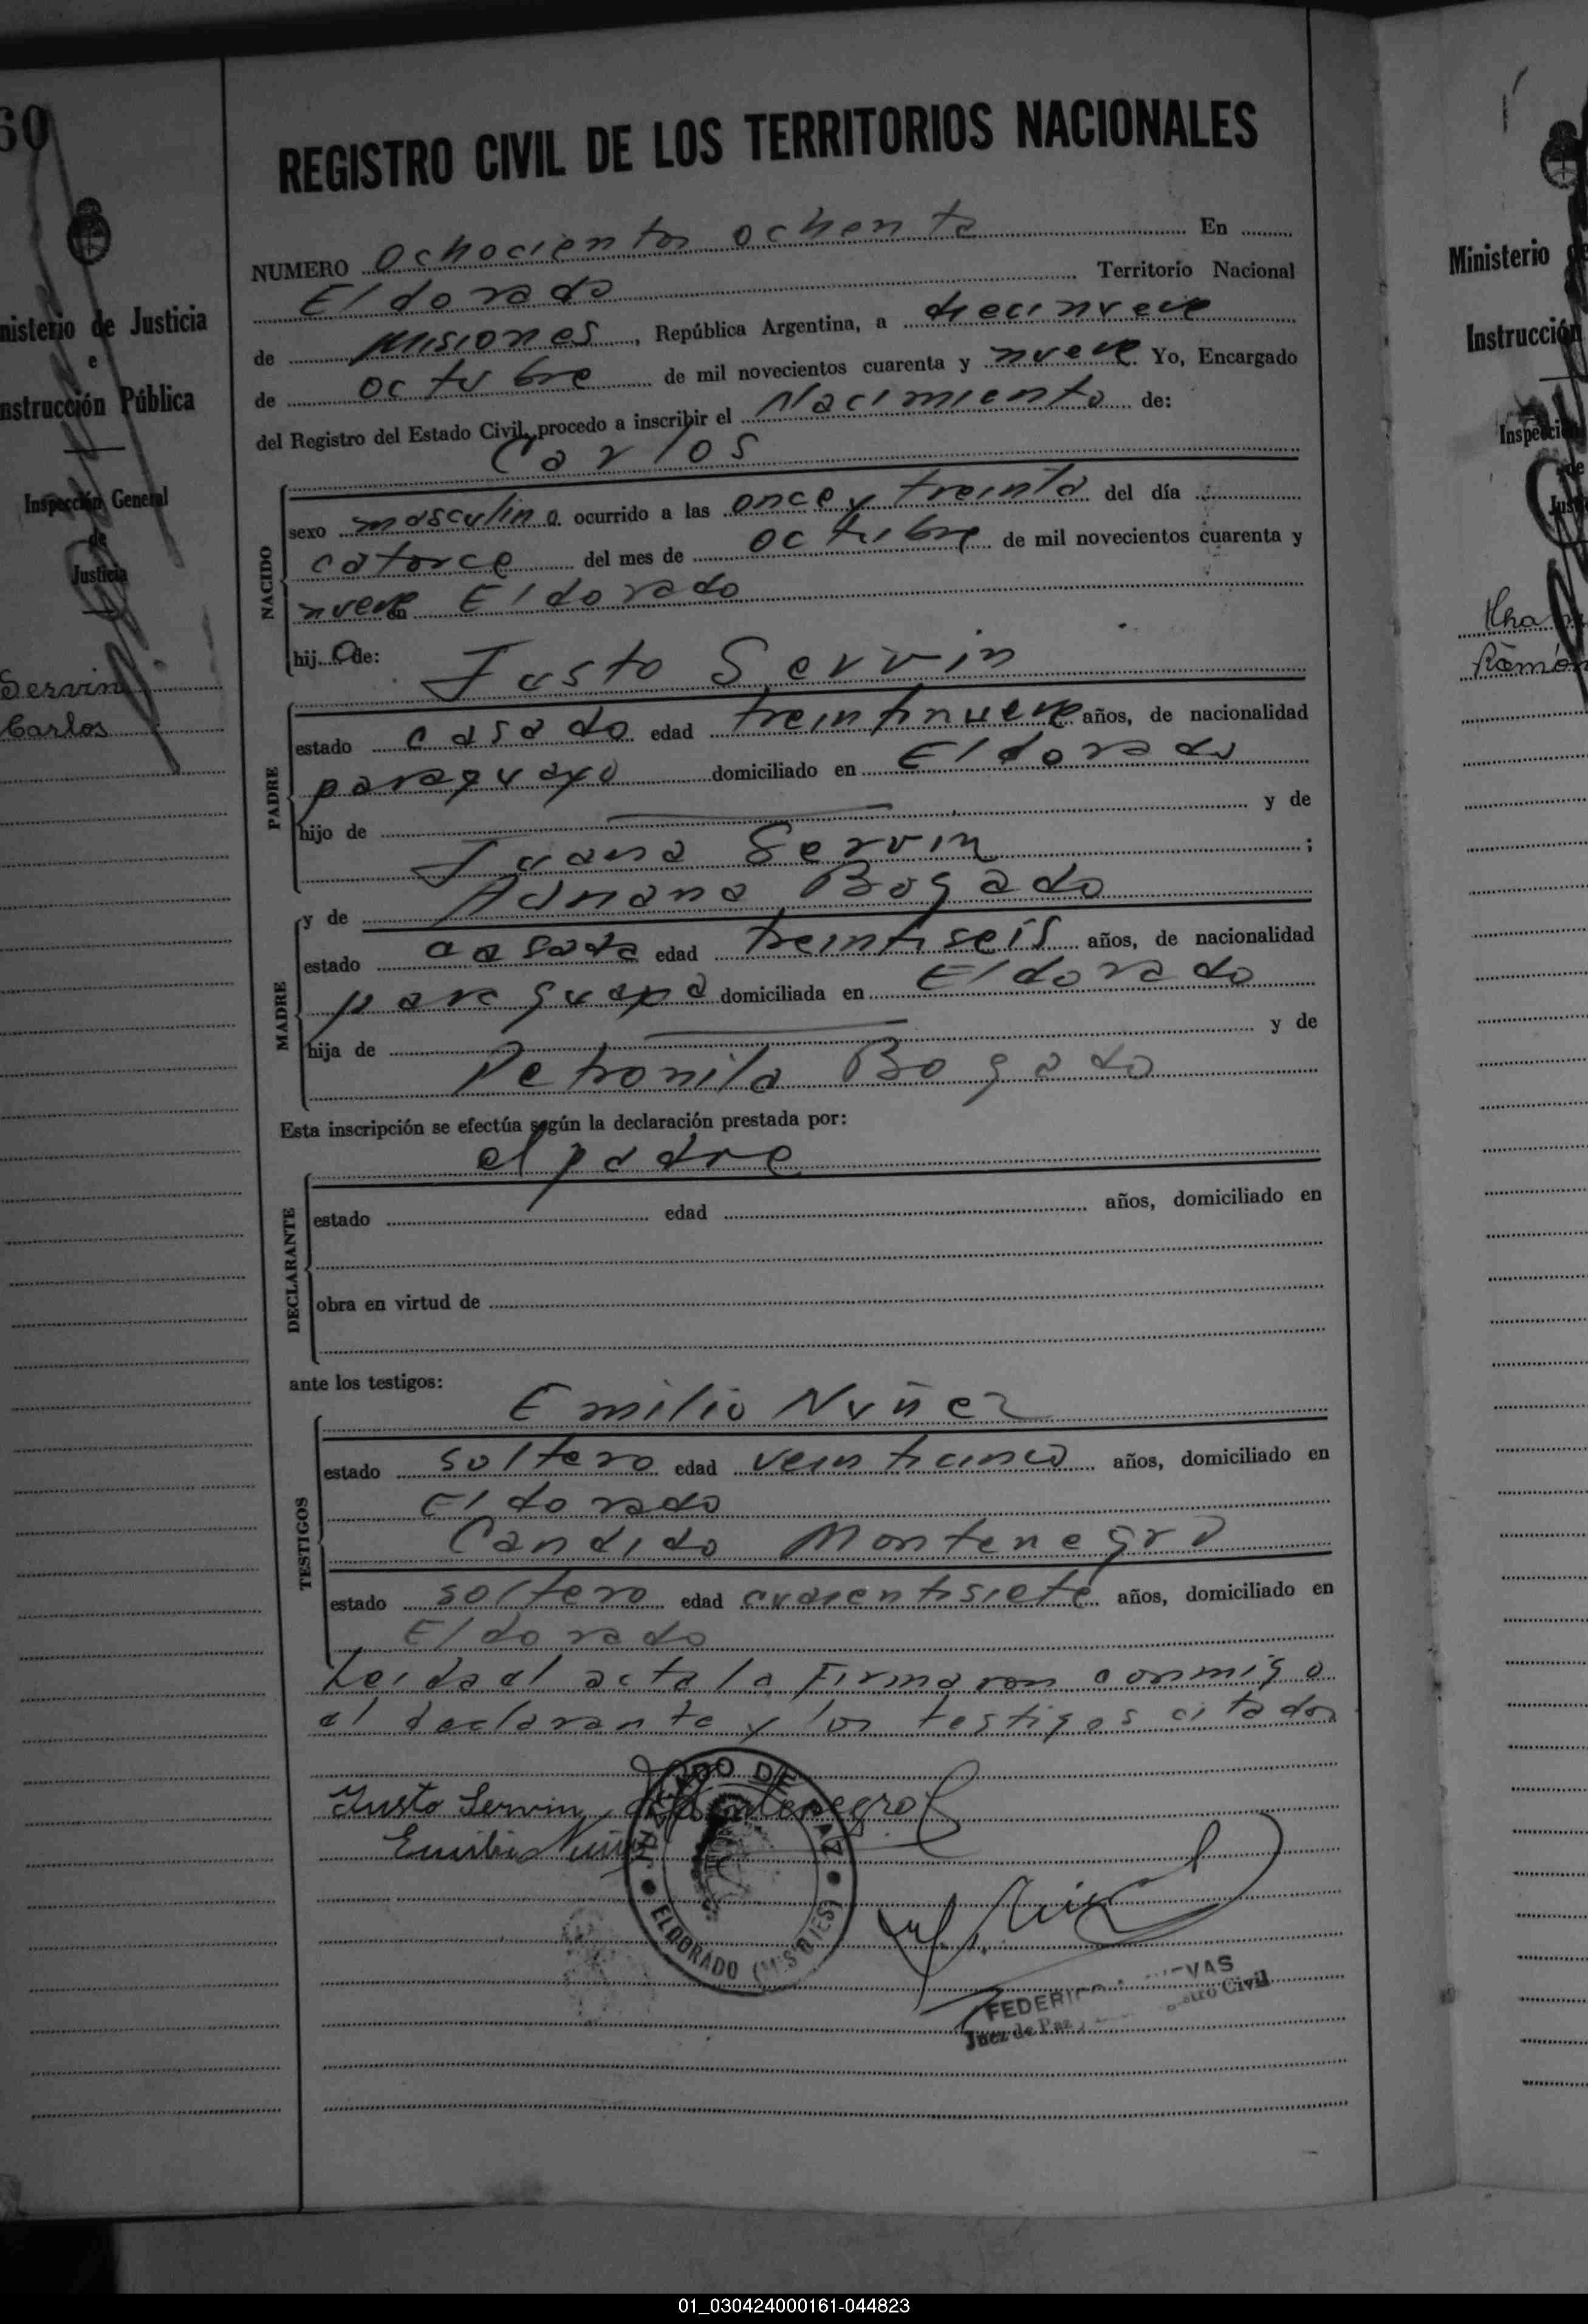 60
nisterio de Justicia
e
nstrucción Pública
Inspección General
de
Justicia
Servin
Carlos
REGISTRO CIVIL DE LOS TERRITORIOS NACIONALES
NUMERO Ochocientos ochenta En
Eldorado Territorio Nacional
de Misiones, República Argentina, a diecinueve
de octubre de mil novecientos cuarenta y nueve Yo, Encargado
del Registro del Estado Civil, procedo a inscribir el Nacimiento de:
Carlos
NACIDO
sexo masculino ocurrido a las once y treinta del día
catorce del mes de octubre de mil novecientos cuarenta y
nueve en Eldorado
hijo de:
Justo Servin
PADRE
estado casado edad treintinueve años, de nacionalidad
paraguayo domiciliado en Eldorado
hijo de y de
Juana Servin ;
MADRE
y de Adriana Bogado
estado casada edad treintiseis años, de nacionalidad
paraguaya domiciliada en Eldorado
hija de y de
Petronila Bogado
Esta inscripción se efectúa según la declaración prestada por:
el padre
DECLARANTE
estado edad años, domiciliado en
obra en virtud de
ante los testigos:
Emilio Nuñez
TESTIGOS
estado soltero edad veinticinco años, domiciliado en
Eldorado
Candido Montenegro
estado soltero edad cuarentisiete años, domiciliado en
Eldorado
Leida el acta la firmaron conmigo
el declarante y los testigos citados
Justo Servin, Montenegro
Emilio Nuñez
JUZGADO DE PAZ
ELDORADO (MISIONES)
FEDERICO
Juez de Paz Registro Civil
Ministerio
Instrucción
Inspección
de
Just
Ramón
01_030424000161-044823